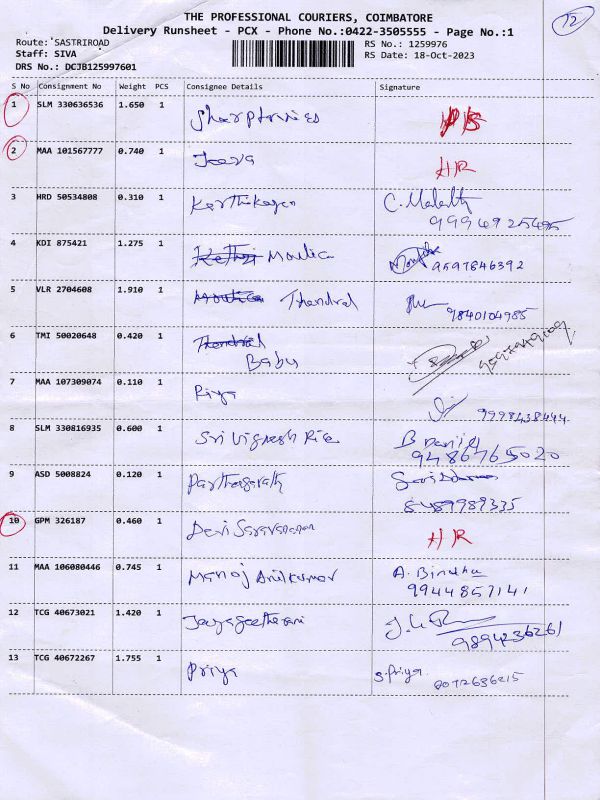 THE PROFESSIONAL COURIERS, COIMBATORE
12
Delivery Runsheet - PCX - Phone No.:0422-3505555 - Page No.:1
Route: SASTRIROAD RS No.: 1259976
Staff: SIVA RS Date: 18-Oct-2023
DRS No.: DCJB125997601
S No Consignment No Weight PCS Consignee Details Signature
1 SLM 330636536 1.650 1
2 MAA 101567777 0.740 1 Jeeva HR
3 HRD 50534808 0.310 1 Karthikeyan C. Malathy
4 KDI 875421 1.275 1 Moulica 9597646392
5 VLR 2704608 1.910 1 Thendral 9840104985
6 TMI 50020648 0.420 1 Thendral
Babu
7 MAA 107309074 0.110 1 Riya
9998438444
8 SLM 330816935 0.600 1 Sri Vignesh Rice B Daniel
9486765020
9 ASD 5008824 0.120 1 Parthasarathy
8489989335
10 GPM 326187 0.460 1 Devi Saravanan HR
11 MAA 106080446 0.745 1 Manoj Anilkumar A. Bindhu
9944857141
12 TCG 40673021 1.420 1 Jayageetharani
9894236261
13 TCG 40672267 1.755 1 Priya S. Priya